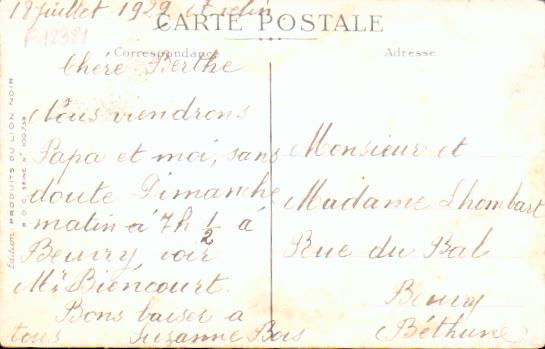 18 juillet 1929
CARTE POSTALE
Correspondance
Adresse
F12381
Chére Berthe
Nous viendrons
Papa et moi, sans
doute Dimanche
matin à 7h 1/2 á
Beuvry voir
Mr Biencourt.
Bons baiser a
tous Suzanne Bois
Monsieur et
Madame Lhombart
Rue du Bal
Beuvry
Béthune
Edition PRODUITS DU LION NOIR